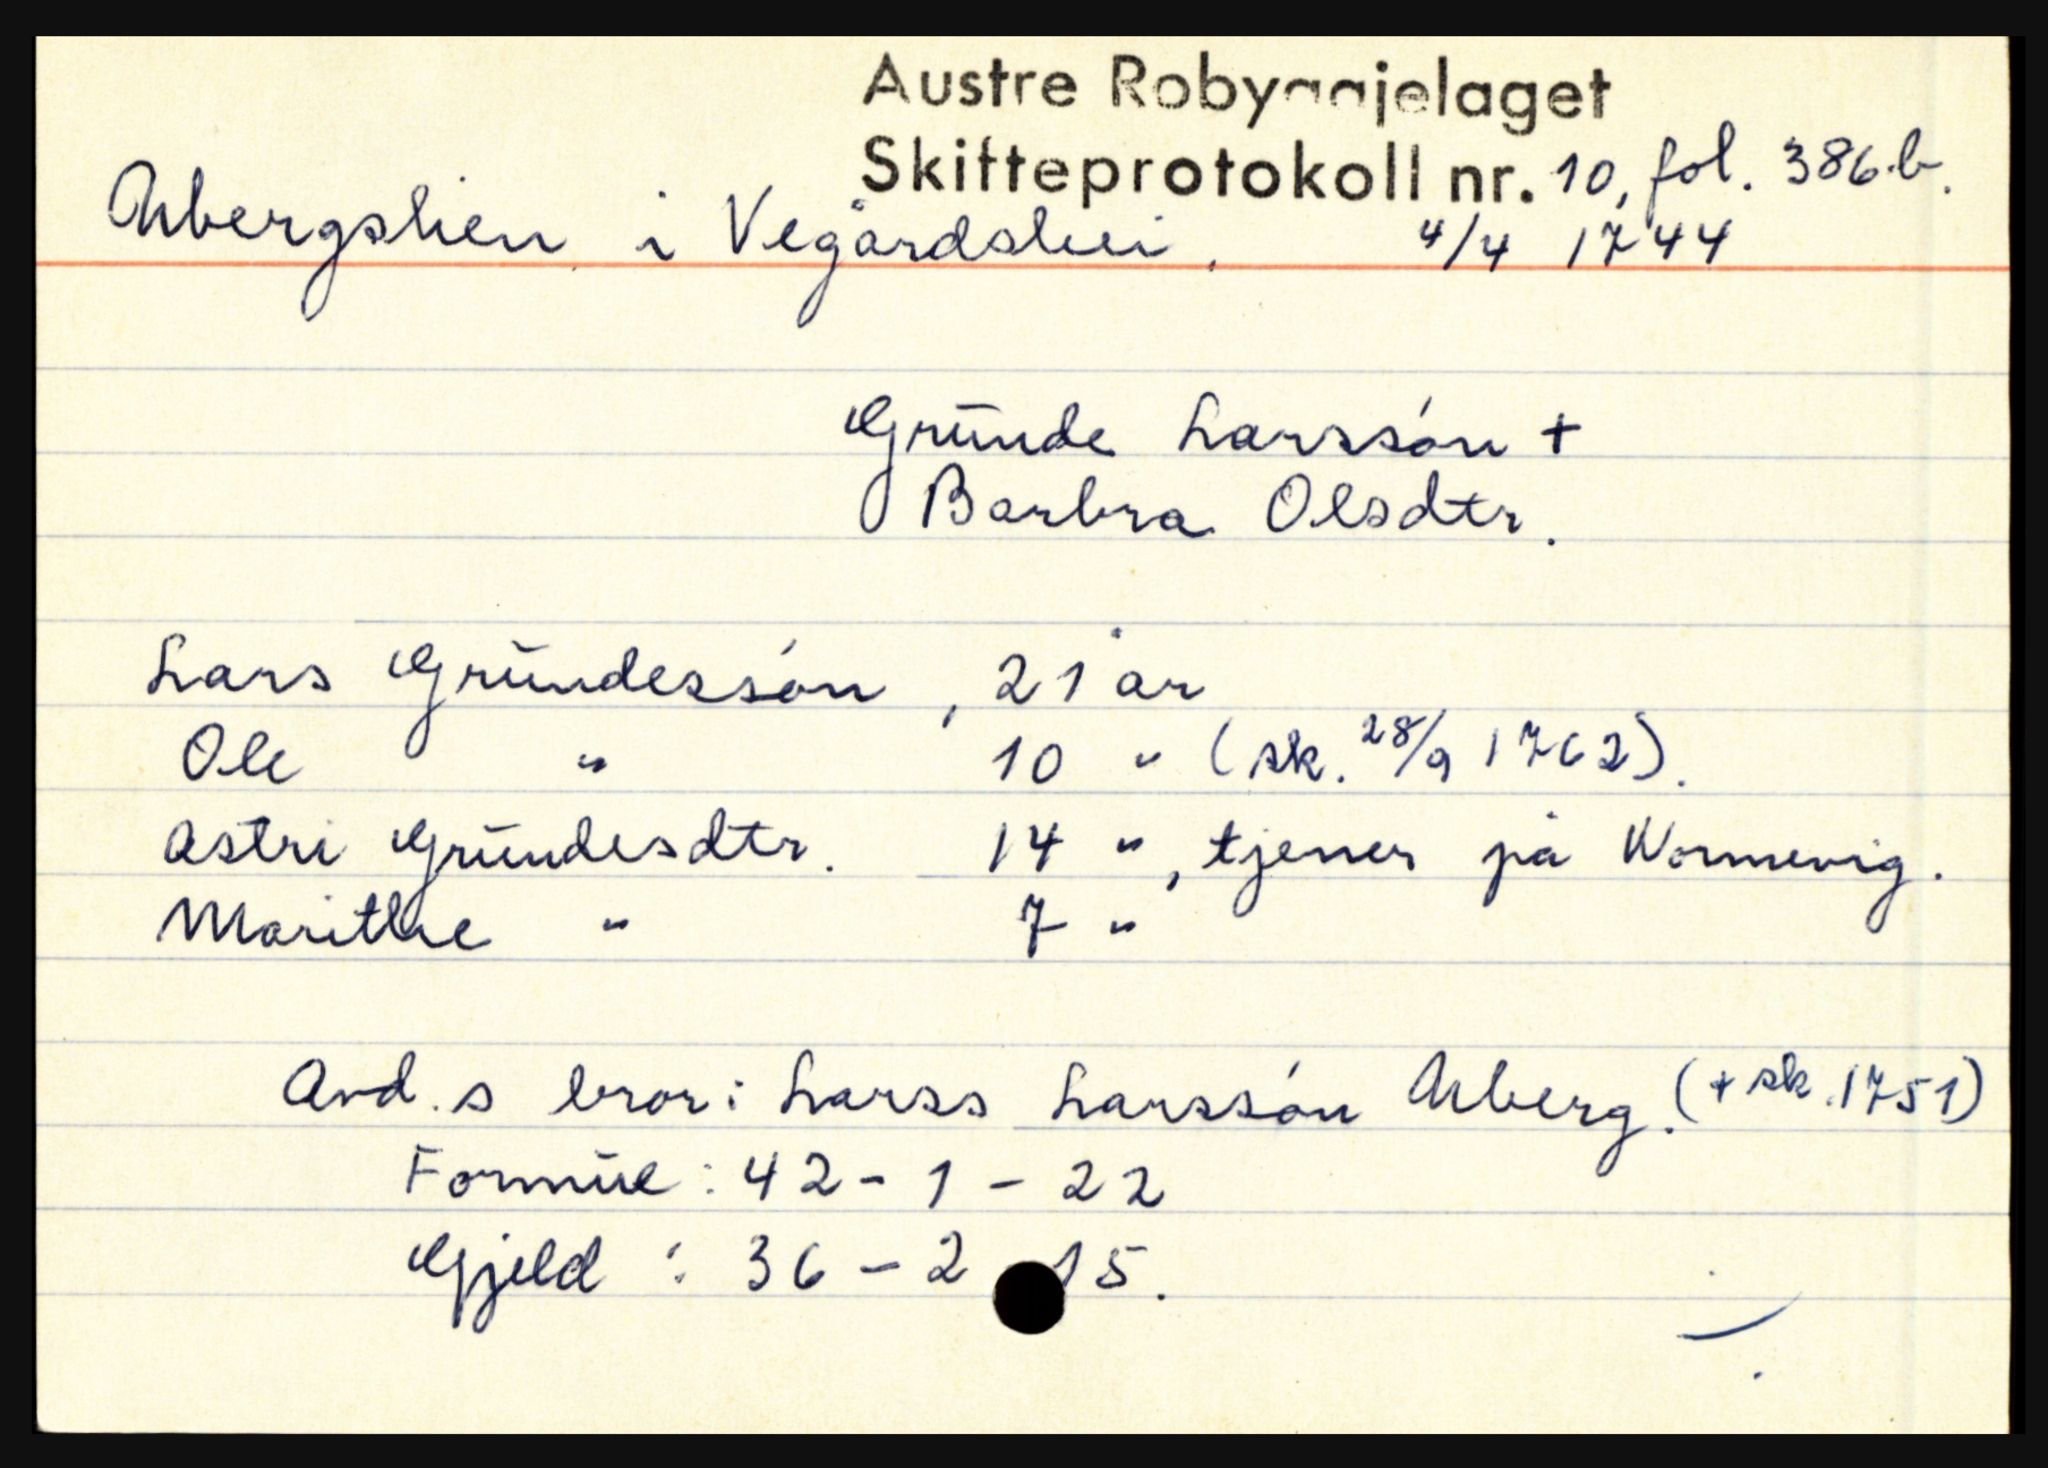 Austre Robyggjelaget
Skifteprotokoll nr. 10, fol. 386.b.
Ubergslien i Vegårdshei. 4/4 1744
Grunde Larssøn +
Barbra Olsdtr.
Lars Grundessøn, 21 år
Ole " 10 " (sk. 28/9 1762).
Astri Grundesdtr. 14 ", tjener på Wormevig.
Marithe " 7 "
Avd.s bror: Larss Larssøn Uberg. (+ sk. 1751)
Formue: 42 - 1 - 22
Gjeld : 36 - 2 15.